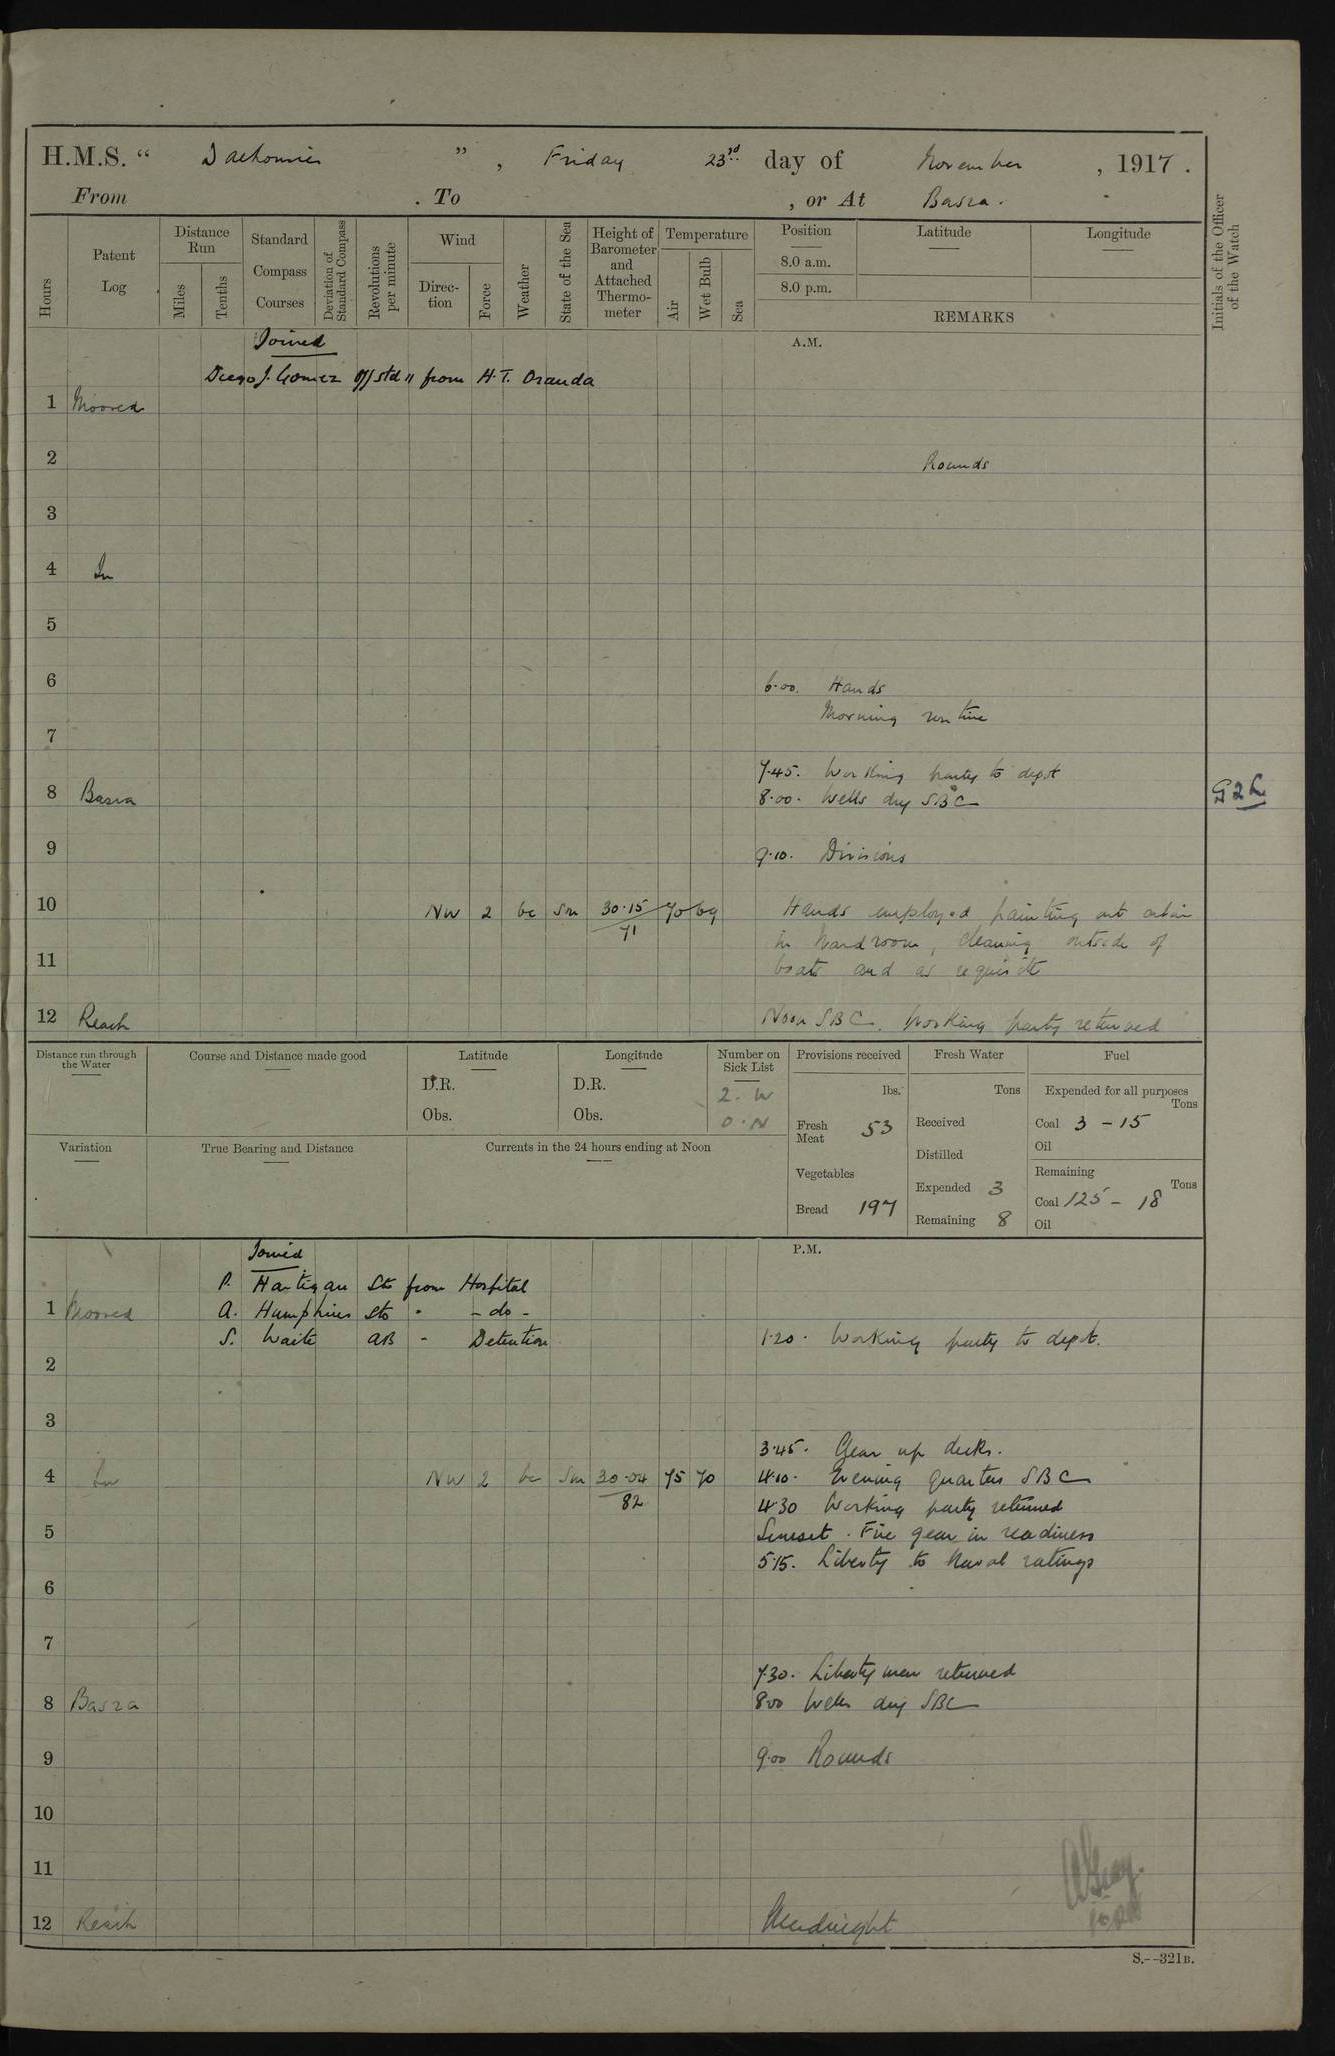 H.M.S. " Dalhousie ", Friday 23rd day of November, 1917.
From . To , or At Basra.
Hours
Patent Log
Distance Run
Miles
Tenths
Standard Compass Courses
Deviation of Standard Compass
Revolutions per minute
Wind
Direction
Force
Weather
State of the Sea
Height of Barometer and Attached Thermometer
Temperature
Air
Wet Bulb
Sea
Position
8.0 a.m.
8.0 p.m.
Latitude
Longitude
REMARKS
Initials of the Officer of the Watch
Joined
A.M.
Diego J. Gomez Off std " from H.T. Oranda
1 Moored
2 Rounds
3
4 In
5
6 6.00. Hands
Morning routine
7
7.45. Working party to depot
8 Basra 8.00. Wells dry SBC
9 9.10. Divisions
10 NW 2 bc Sm 30.15 70 69 Hands employed painting out cabin
71 in wardroom, cleaning outside of
11 boats and as requisite
12 Reach Noon SBC. Working party returned
Distance run through the Water
Course and Distance made good
Latitude
D.R.
Obs.
Longitude
D.R.
Obs.
Number on Sick List
2. W
0. N
Provisions received
lbs.
Fresh Meat 53
Vegetables
Bread 197
Fresh Water
Tons
Received
Distilled
Expended 3
Remaining 8
Fuel
Expended for all purposes
Tons
Coal 3 - 15
Oil
Remaining
Tons
Coal 125 - 18
Oil
Variation
True Bearing and Distance
Currents in the 24 hours ending at Noon
Joined
P.M.
P. Hartigan Sto from Hospital
1 Moored A. Humphries Sto " - do -
S. Waite AB " Detention 1.20. Working party to depot.
2
3
3.45. Clear up decks.
4 In NW 2 bc Sm 30.04 75 70 4.10. Evening quarters SBC
82 4.30 Working party returned
5 Sunset. Fire gear in readiness
5.15. Liberty to Naval ratings
6
7
7.30. Liberty men returned
8 Basra 8.00 Wells dry SBC
9 9.00 Rounds
10
11
12 Reach Midnight
S.--321B.